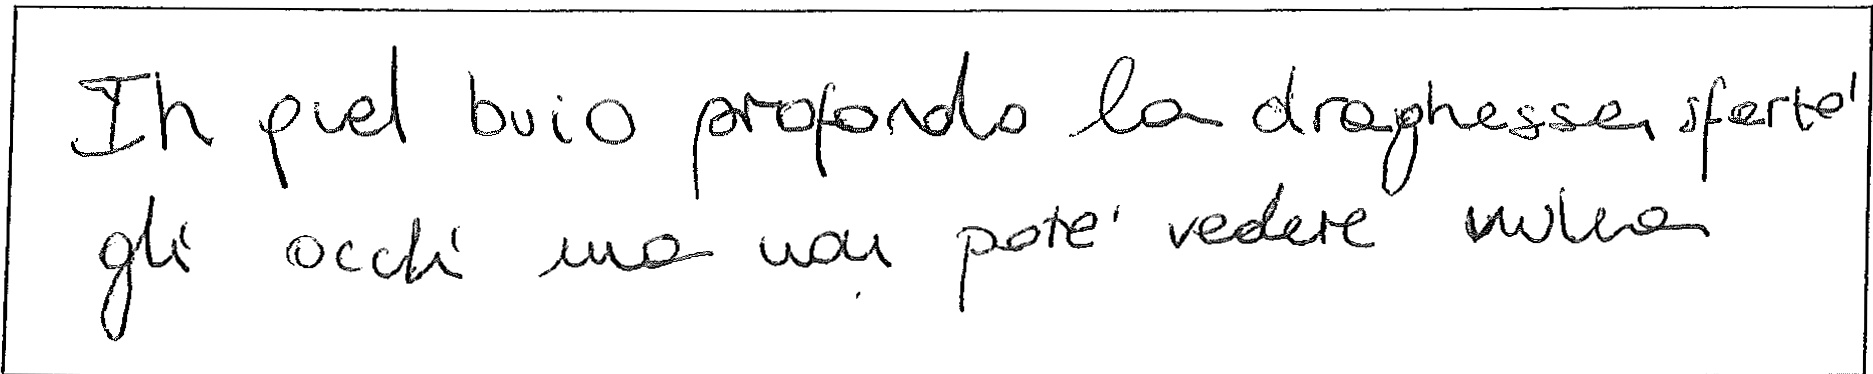 In quel buio profondo la draghessa
gli occhi ma non pote' vedere nulla